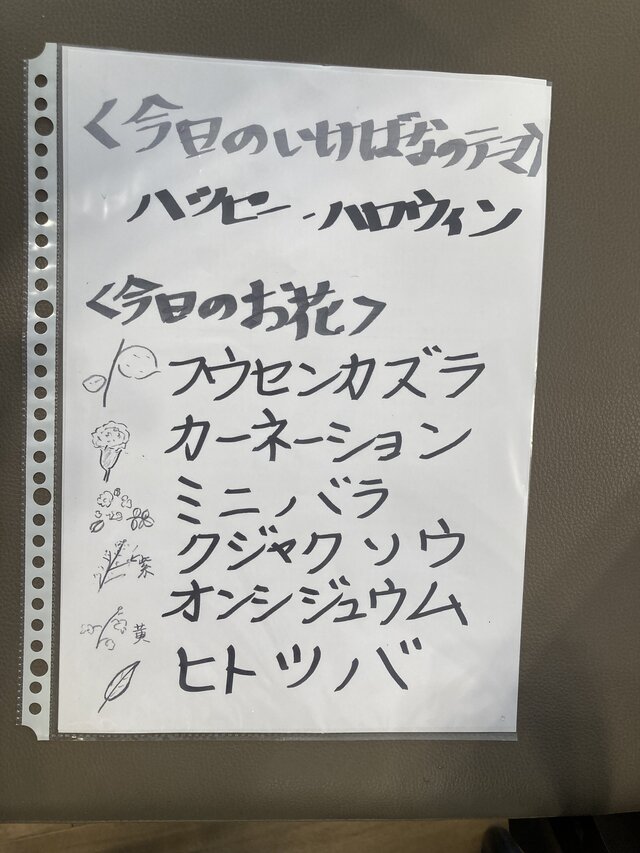 <今日のいけばなのテーマ>
ハッピー ハロウィン
<今日のお花>
フウセンカズラ
カーネーション
ミニバラ
クジャクソウ
紫
オンシジュウム
黄
ヒトツバ